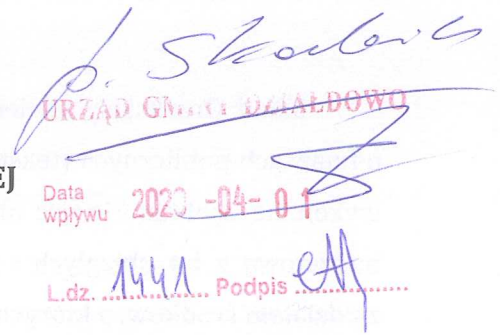 URZĄD GMINY DZIAŁDOWO
EJ
Data
wpływu 2020 -04- 01
L.dz. 1441 Podpis